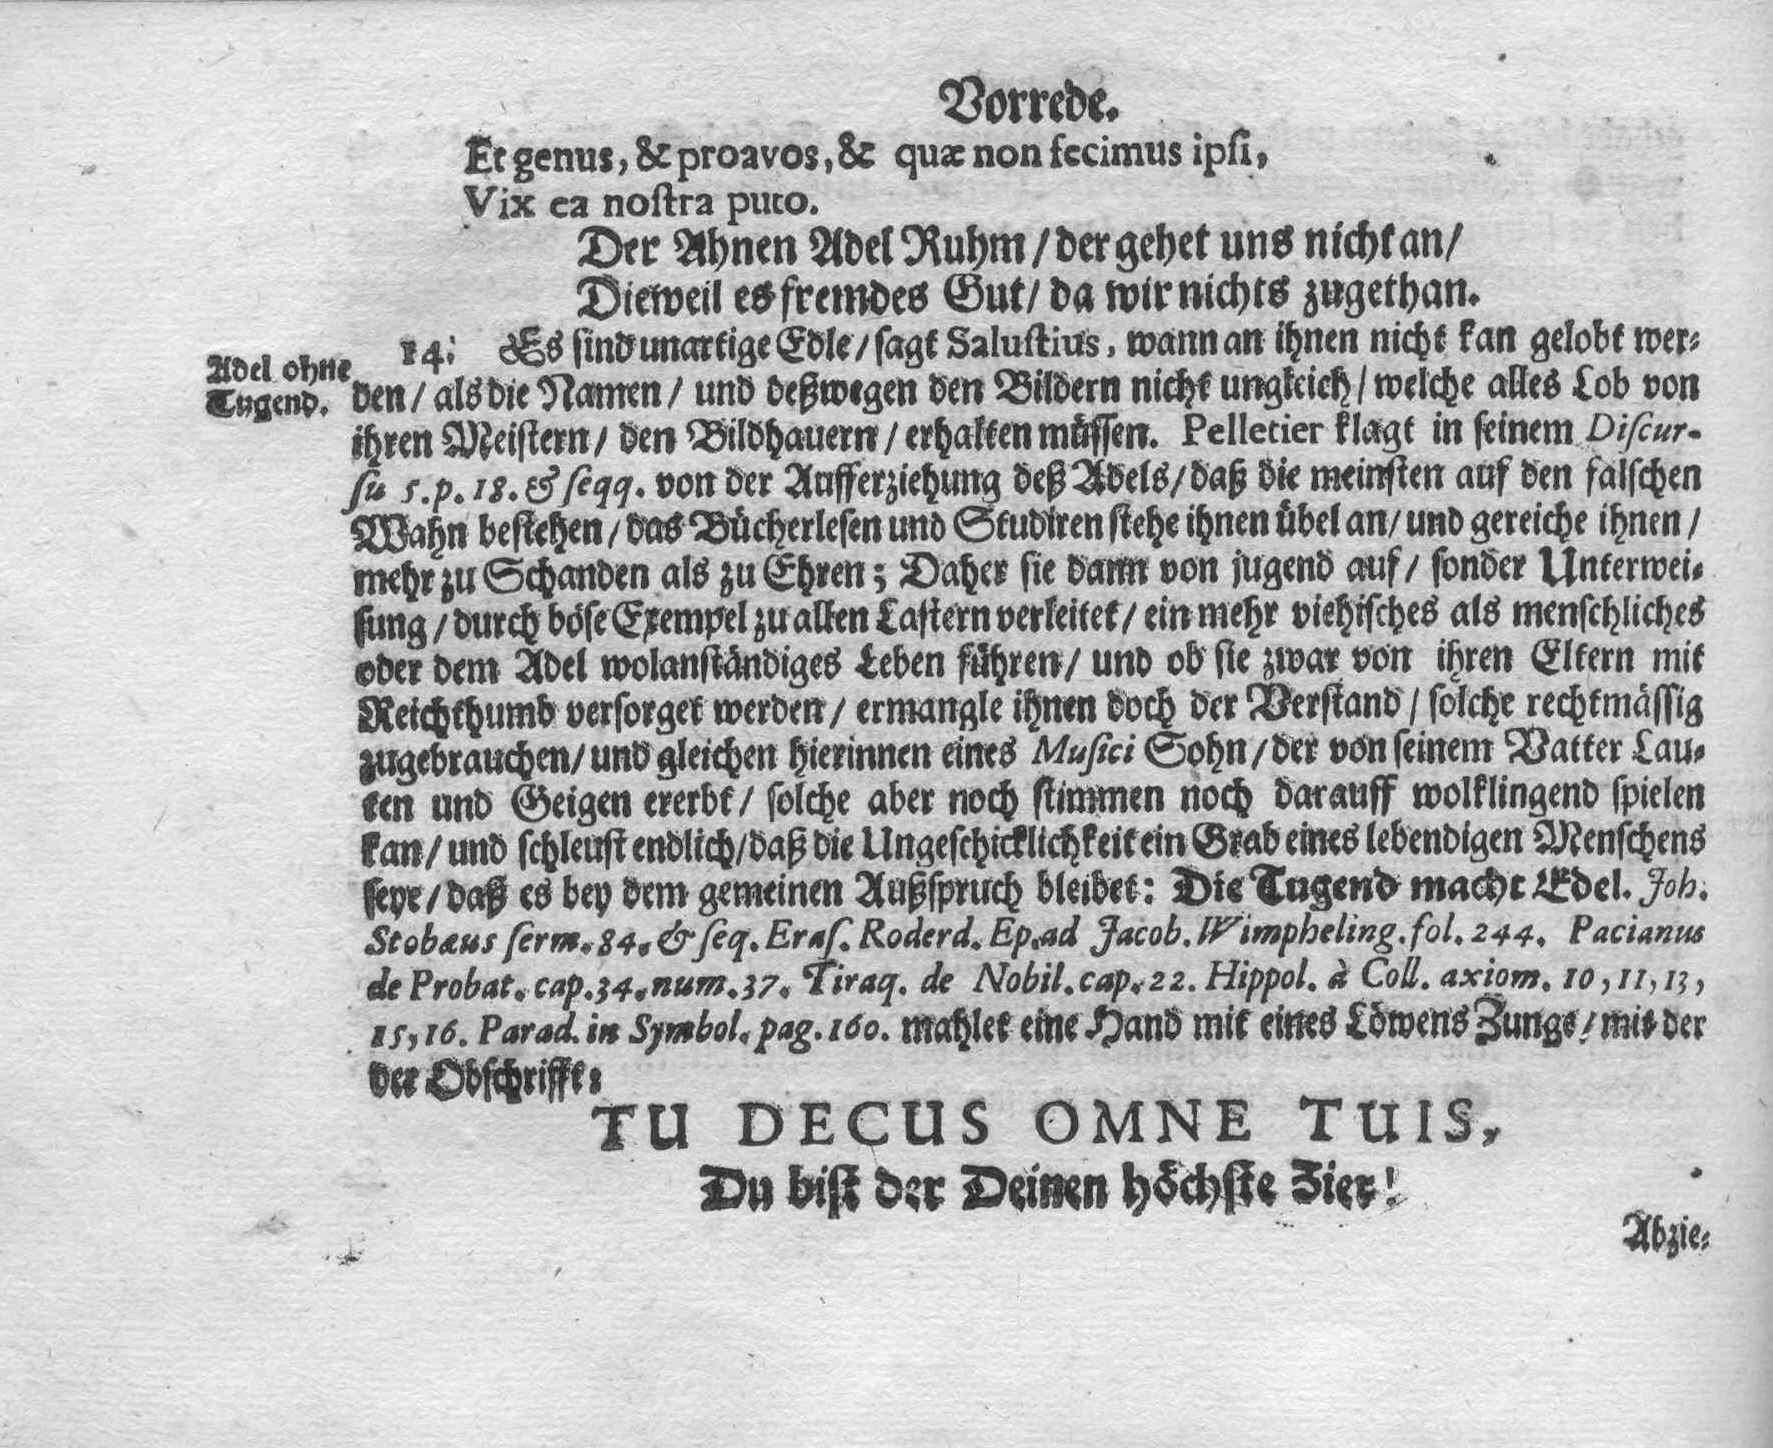 Vorrede.
Et genus, & proavos, & quæ non fecimus ipſi,
Vix ea noſtra puto.
Der Ahnen Adel Ruhm / der gehet uns nicht an /
Dieweil es fremdes Gut / da wir nichts zugethan.
Adel ohne
Tugend.
14. Es ſind unartige Edle / ſagt Saluſtius, wann an ihnen nicht kan gelobt wer-
den / als die Namen / und deßwegen den Bildern nicht ungleich / welche alles Lob von
ihren Meiſtern / den Bildhauern / erhalten müſſen. Pelletier klagt in ſeinem Diſcur-
ſu 5. p. 18. & ſeqq. von der Aufferziehung deß Adels / daß die meinſten auf den falſchen
Wahn beſtehen / das Bücherleſen und Studiren ſtehe ihnen übel an / und gereiche ihnen /
mehr zu Schanden als zu Ehren; Daher ſie dann von jugend auf / ſonder Unterwei-
ſung / durch böſe Exempel zu allen Laſtern verleitet / ein mehr viehiſches als menſchliches
oder dem Adel wolanſtändiges Leben führen / und ob ſie zwar von ihren Eltern mit
Reichthumb verſorget werden / ermangle ihnen doch der Verſtand / ſolche rechtmäſſig
zugebrauchen / und gleichen hierinnen eines Muſici Sohn / der von ſeinem Vatter Lau-
ten und Geigen ererbt / ſolche aber noch ſtimmen noch darauff wolklingend ſpielen
kan / und ſchleuſt endlich / daß die Ungeſchicklichkeit ein Grab eines lebendigen Menſchens
ſeye / daß es bey dem gemeinen Außſpruch bleibet: Die Tugend macht Edel. Joh.
Stobæus ſerm. 84. & ſeq. Eraſ. Roderd. Ep. ad Jacob. Wimpheling. fol. 244. Pacianus
de Probat. cap. 34. num. 37. Tiraq. de Nobil. cap. 22. Hippol. à Coll. axiom. 10, 11, 13,
15, 16. Parad. in Symbol. pag. 160. mahlet eine Hand mit eines Löwens Zunge / mit der
der Obſchrifft:
TU DECUS OMNE TUIS,
Du biſt der Deinen höchſte Zier!
Abzie-